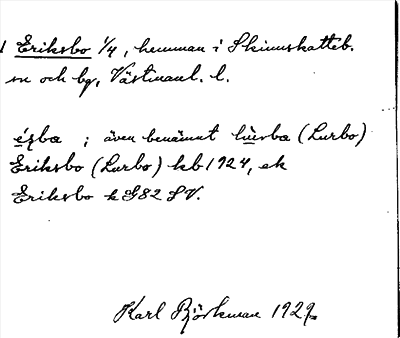 1 Eriksbo 1/4, hemman i Skinnskatteb.
sn och bg, Västmanl. l.
; även benämnt (Lurbo)
Eriksbo (Lurbo) kb 1924, ek
Eriksbo k G82 SV.
Karl Björkman 1929